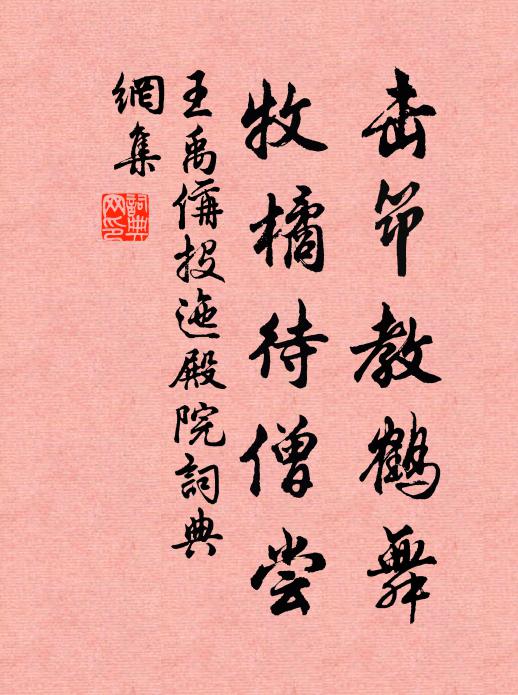 击节教鹤舞
牧橘待僧尝
王禹偁投迤殿院詞典
網集
詞典网印